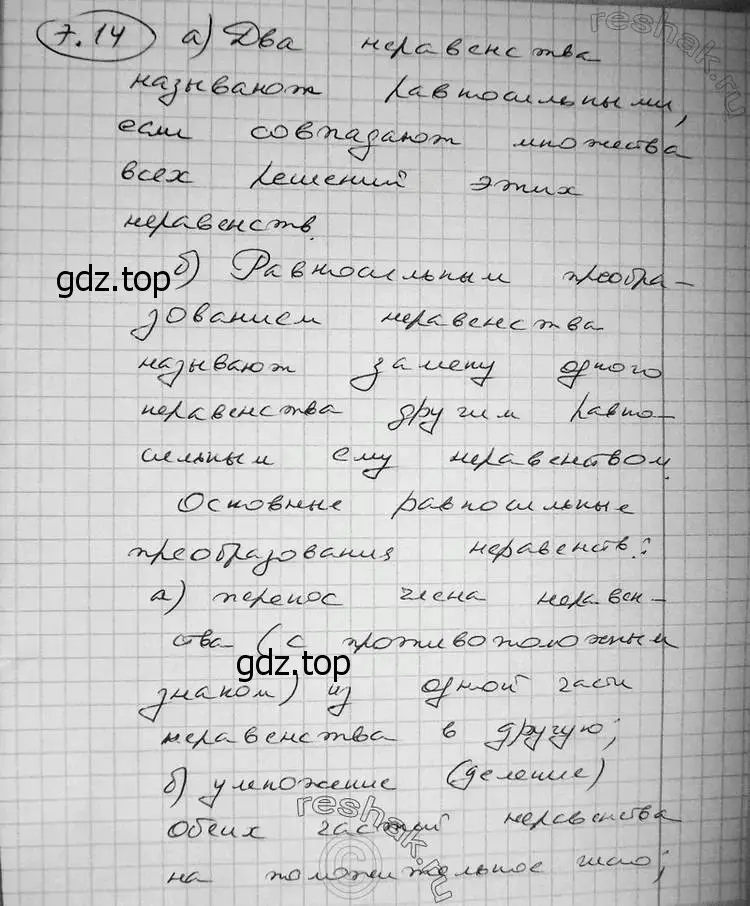 7.14 а) Два неравенства
называют равносильными,
если совпадают множества
всех решений этих
неравенств.
б) Равносильным преобра-
зованием неравенства
называют замену одного
неравенства другим равно-
сильным ему неравенством.
Основные равносильные
преобразования неравенств:
а) перенос члена неравен-
ства (с противоположным
знаком) из одной части
неравенства в другую;
б) умножение (деление)
обеих частей неравенства
на положительное число;
reshak.ru
gdz.top
gdz.top
reshak.ru
©